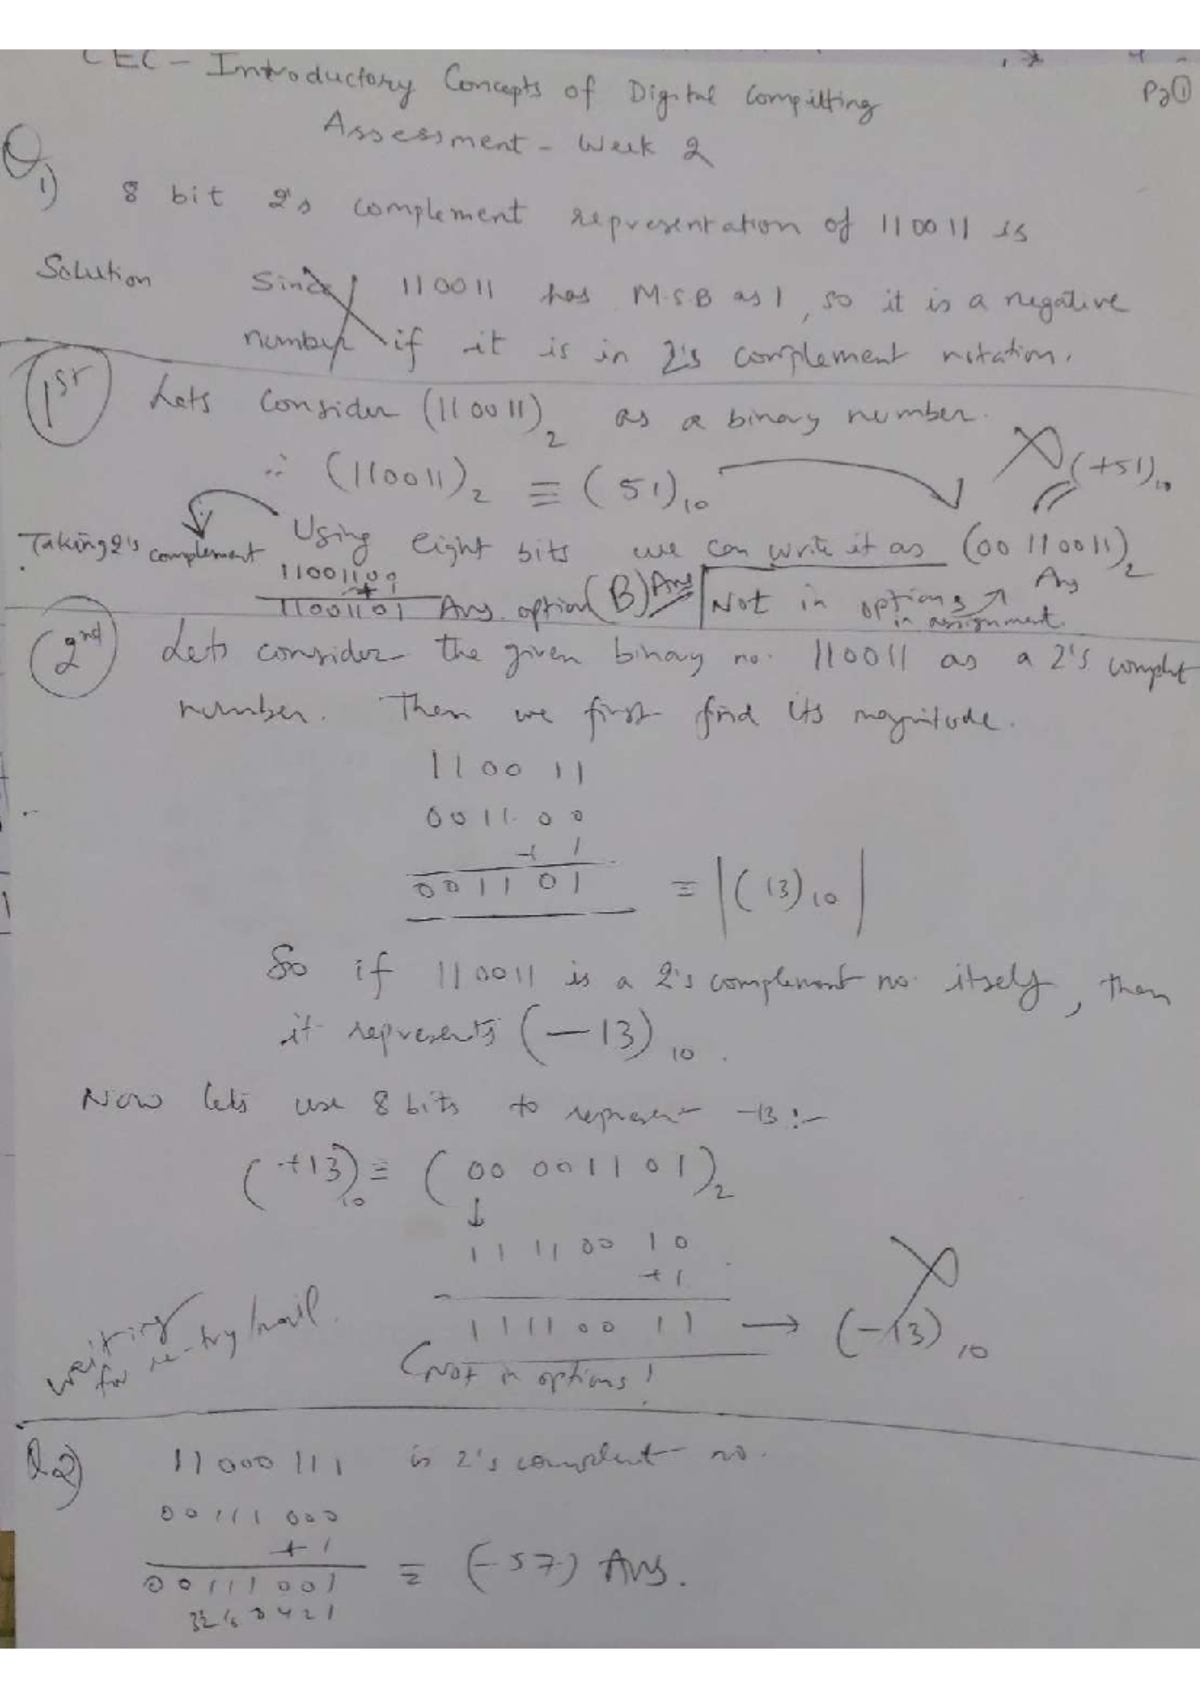 CEC - Introductory Concepts of Digital Compitting
Pg ①
Assessment - Week 2
Q1) 8 bit 2's complement representation of 110011 is
Solution Since 110011 has M.S.B as 1, so it is a negative
number if it is in 2's complement notation.
1st Lets consider (110011)2 as a binary number.
∴ (110011)2 ≡ (51)10 (+51)10
Using eight bits we can write it as (00110011)2
Taking 2's complement
11001100
+
11001101 Ans. option (B) Ans Not in options in assignment. Ans
2nd Lets consider the given binary no. 110011 as a 2's complet
number. Then we first find its magnitude.
110011
001100
+ 1
001101 ≡ |(13)10|
So if 110011 is a 2's complement no. itself, then
it represents (-13)10.
Now lets use 8 bits to represent -13:-
(+13)10 ≡ (00001101)2
↓
11110010
+1
11110011 → (-13)10
(Not in options!
waiting for re-try/mail.
Q2) 11000111 is 2's complent no.
00111000
+ 1
00111001 ≡ (-57) Ans.
32 16 8 4 2 1